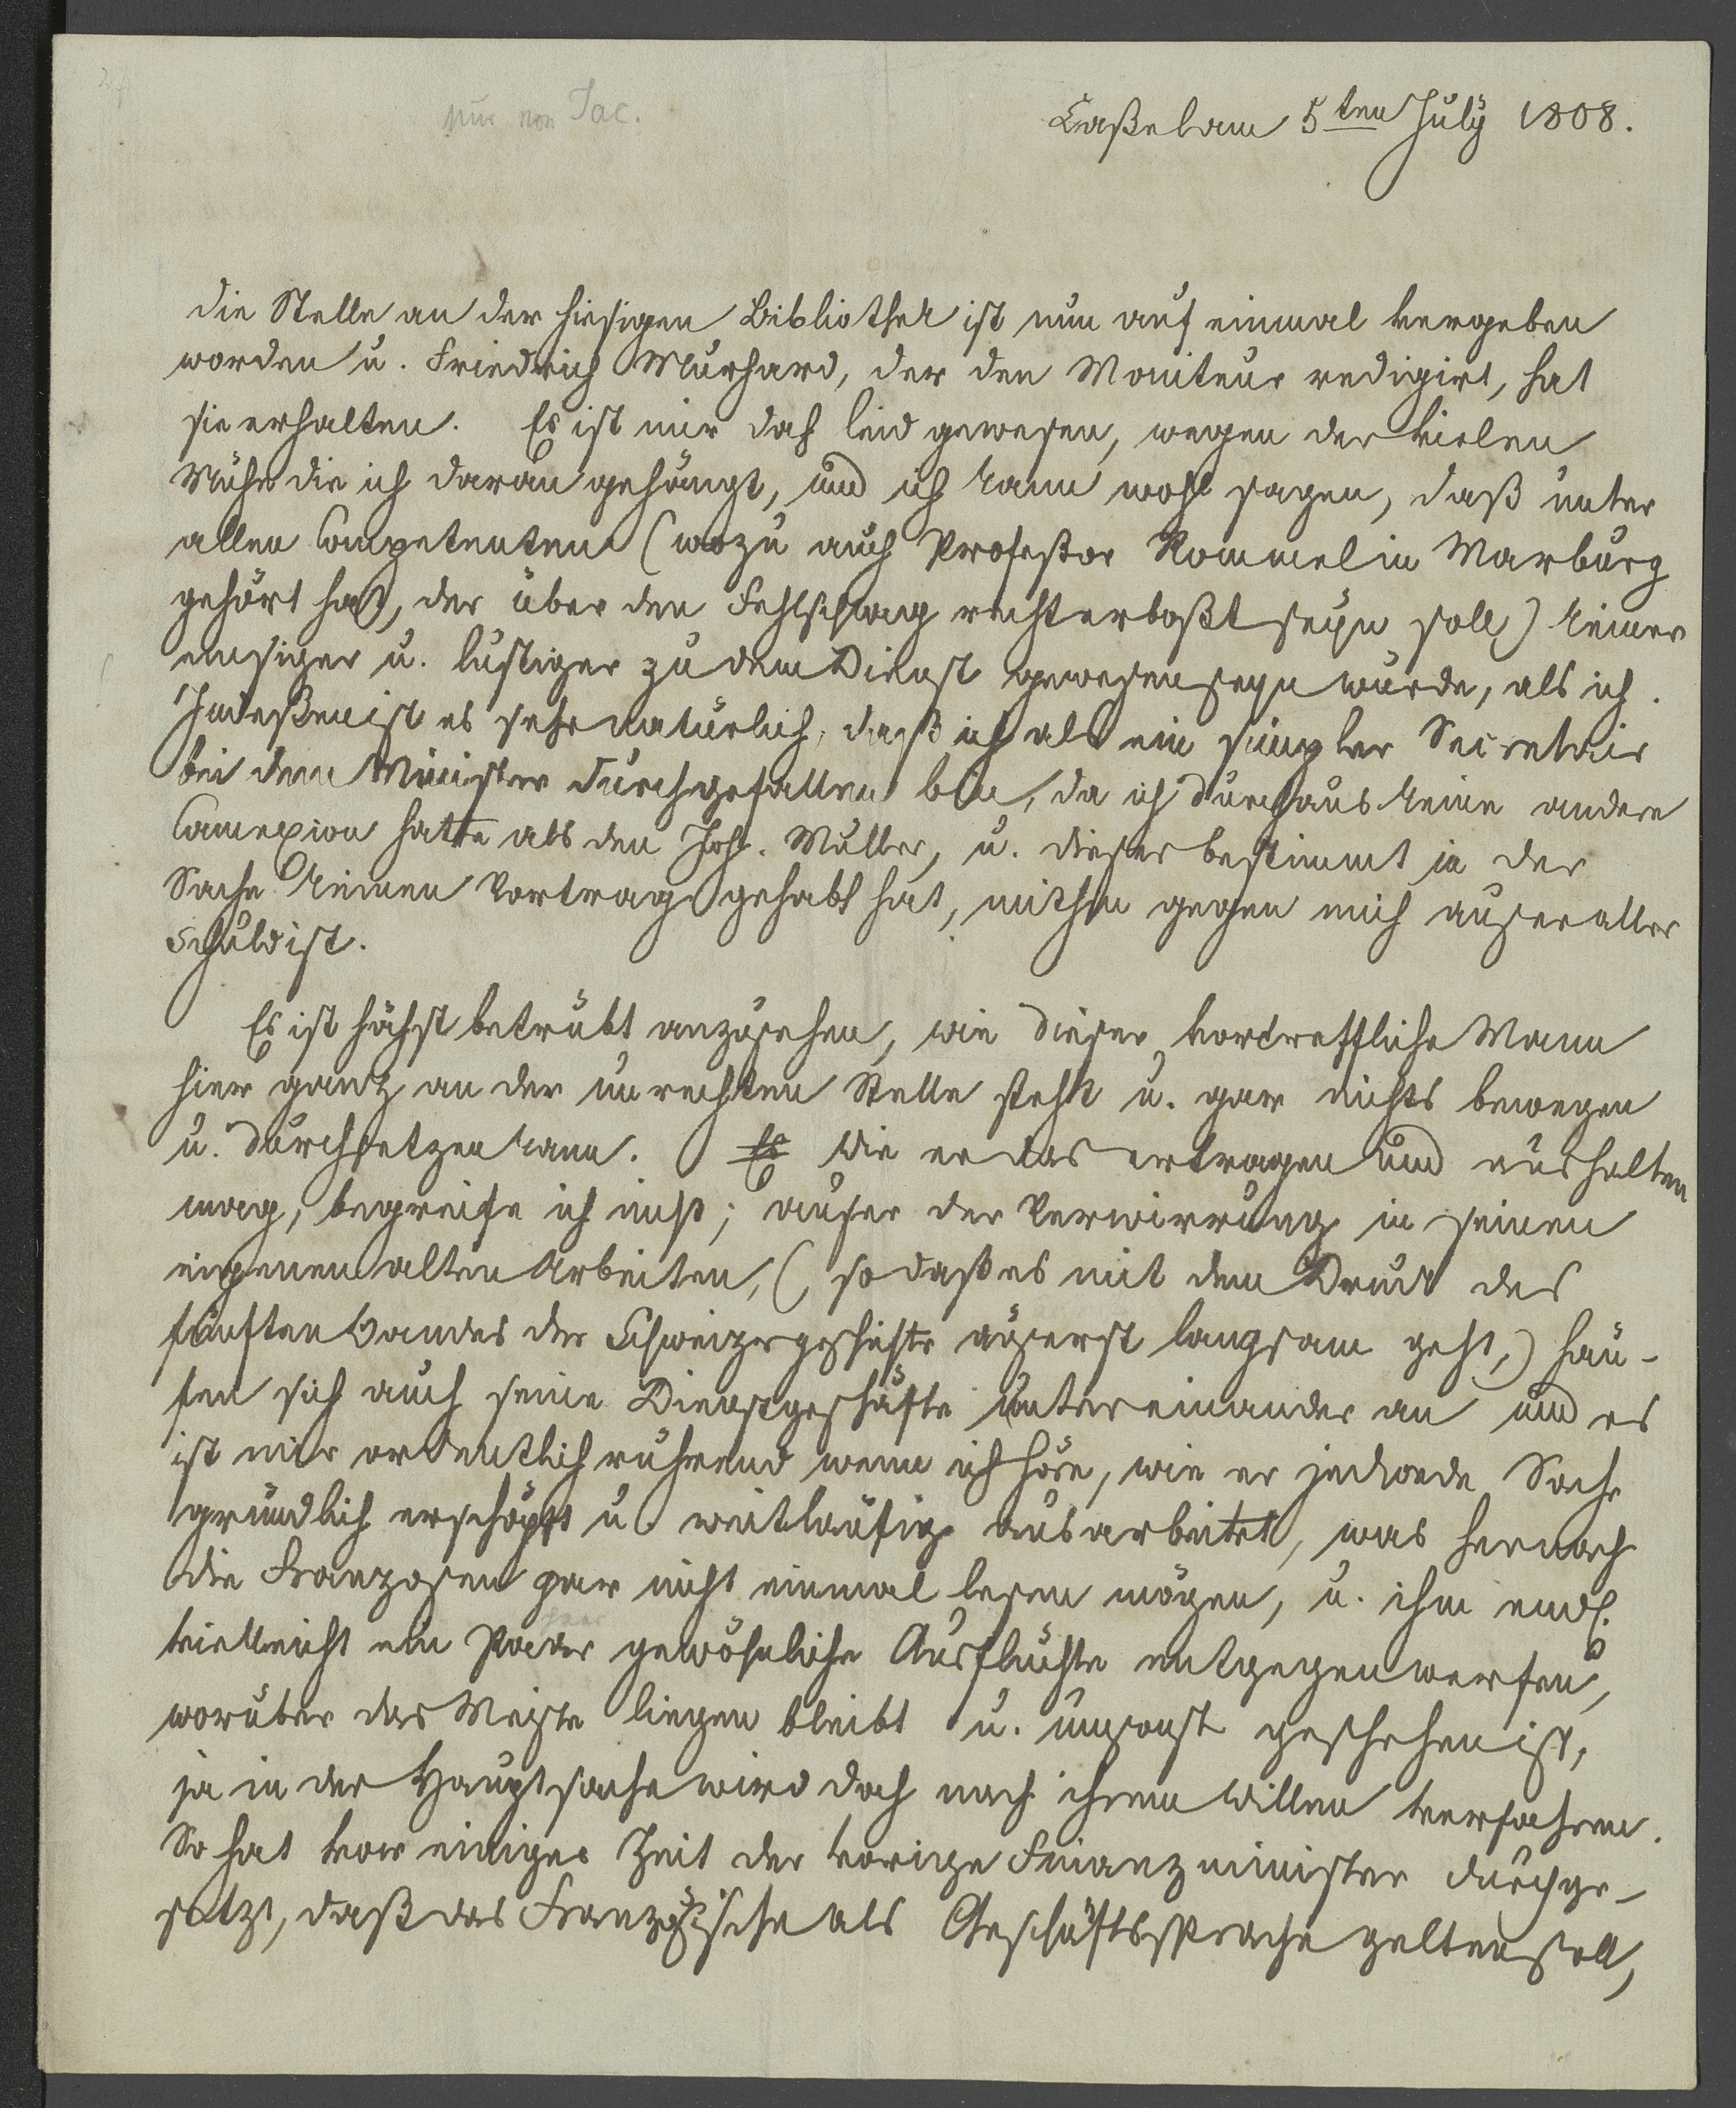 nur von Jac.
Caßel am 5ten July 1808.
die Stelle an der hiesigen Bibliothek ist nun auf einmal vergeben
worden u. Friedrich Murhard, der den Moniteur redigirt, hat
sie erhalten. Es ist mir doch leid gewesen, wegen der vielen
Mühe die ich daran gehängt, und ich kann wohl sagen, daß unter
allen Competenten (wozu auch Profeßor Rommel in Marburg
gehört hat, der über den Fehlschlag recht erboßt seyn soll) keiner
emsiger u. lustiger zu dem Dienst gewesen seyn würde, als ich.
Indeßen ist es sehr natürlich, daß ich als ein simpler Secretair
bei dem Minister durchgefallen bin, da ich durchaus keine andere
Connexion hatte als den Joh. Müller, u. dieser bestimmt in der
Sache keinen Vortrag gehabt hat, mithin gegen mich auser aller
Schuld ist.
Es ist höchst betrübt anzusehen, wie dieser vortreffliche Mann
hier ganz an der unrechten Stelle steht u. gar nichts bewegen
u. durchsetzen kann. Es Wie er das ertragen und aushalten
mag, begreife ich nicht; auser der Verwirrung in seinen
eigenen alten Arbeiten, (so daß es mit dem Druck des
fünften Bandes der Schweizergeschichte äuserst langsam geht,) häu-
fen sich auch seine Dienstgeschäfte untereinander an und es
ist mir ordentlich rührend wenn ich höre, wie er jedwede Sache
gründlich erschöpft u. weitläufig ausarbeitet, was hernach
die Franzosen gar nicht einmal lesen mögen, u. ihm endl.
vielleicht ein Paar gewöhnliche Ausflüchte entgegenwerfen,
worüber das Meiste liegen bleibt u. umsonst geschehen ist,
ja in der Hauptsache wird doch nach ihrem Willen verfahren.
So hat vor einiger Zeit der vorige Finanzminister durchge-
setzt, daß das Französische als Geschäftssprache gelten soll,